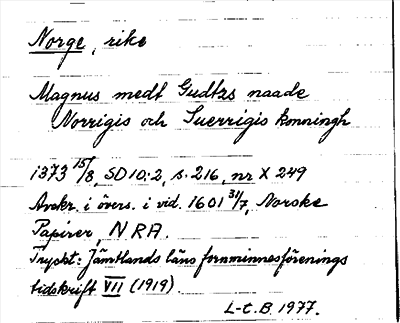 Norge, rike
Magnus medt Gudtzs naade
Norrigis och Suerrigis konningh
1373 15/8, SD 10:2, s. 216, nr X 249
Avskr. i övers. i vid. 1601 31/7, Norske
Papirer, NRA.
Tryckt: Jämtlands läns fornminnesförenings
tidskrift VII (1919).
L-t. B. 1977.